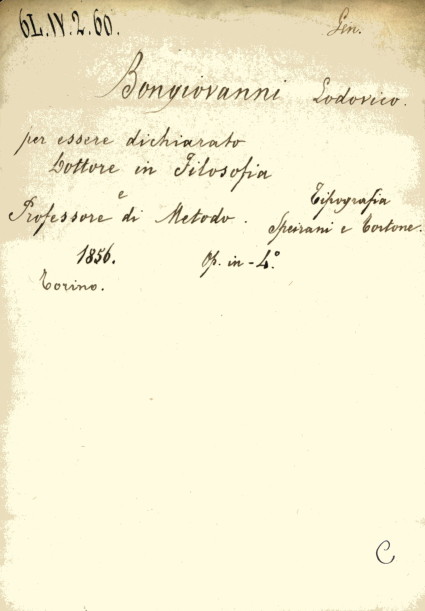 6L.IV.2.60.
Gen.
Bongiovanni Lodovico.
per essere dichiarato
Dottore in Filosofia
e
Professore di Metodo.
Tipografia
Speirani e Tortone.
1856. Op. in-4.°
Torino.
C